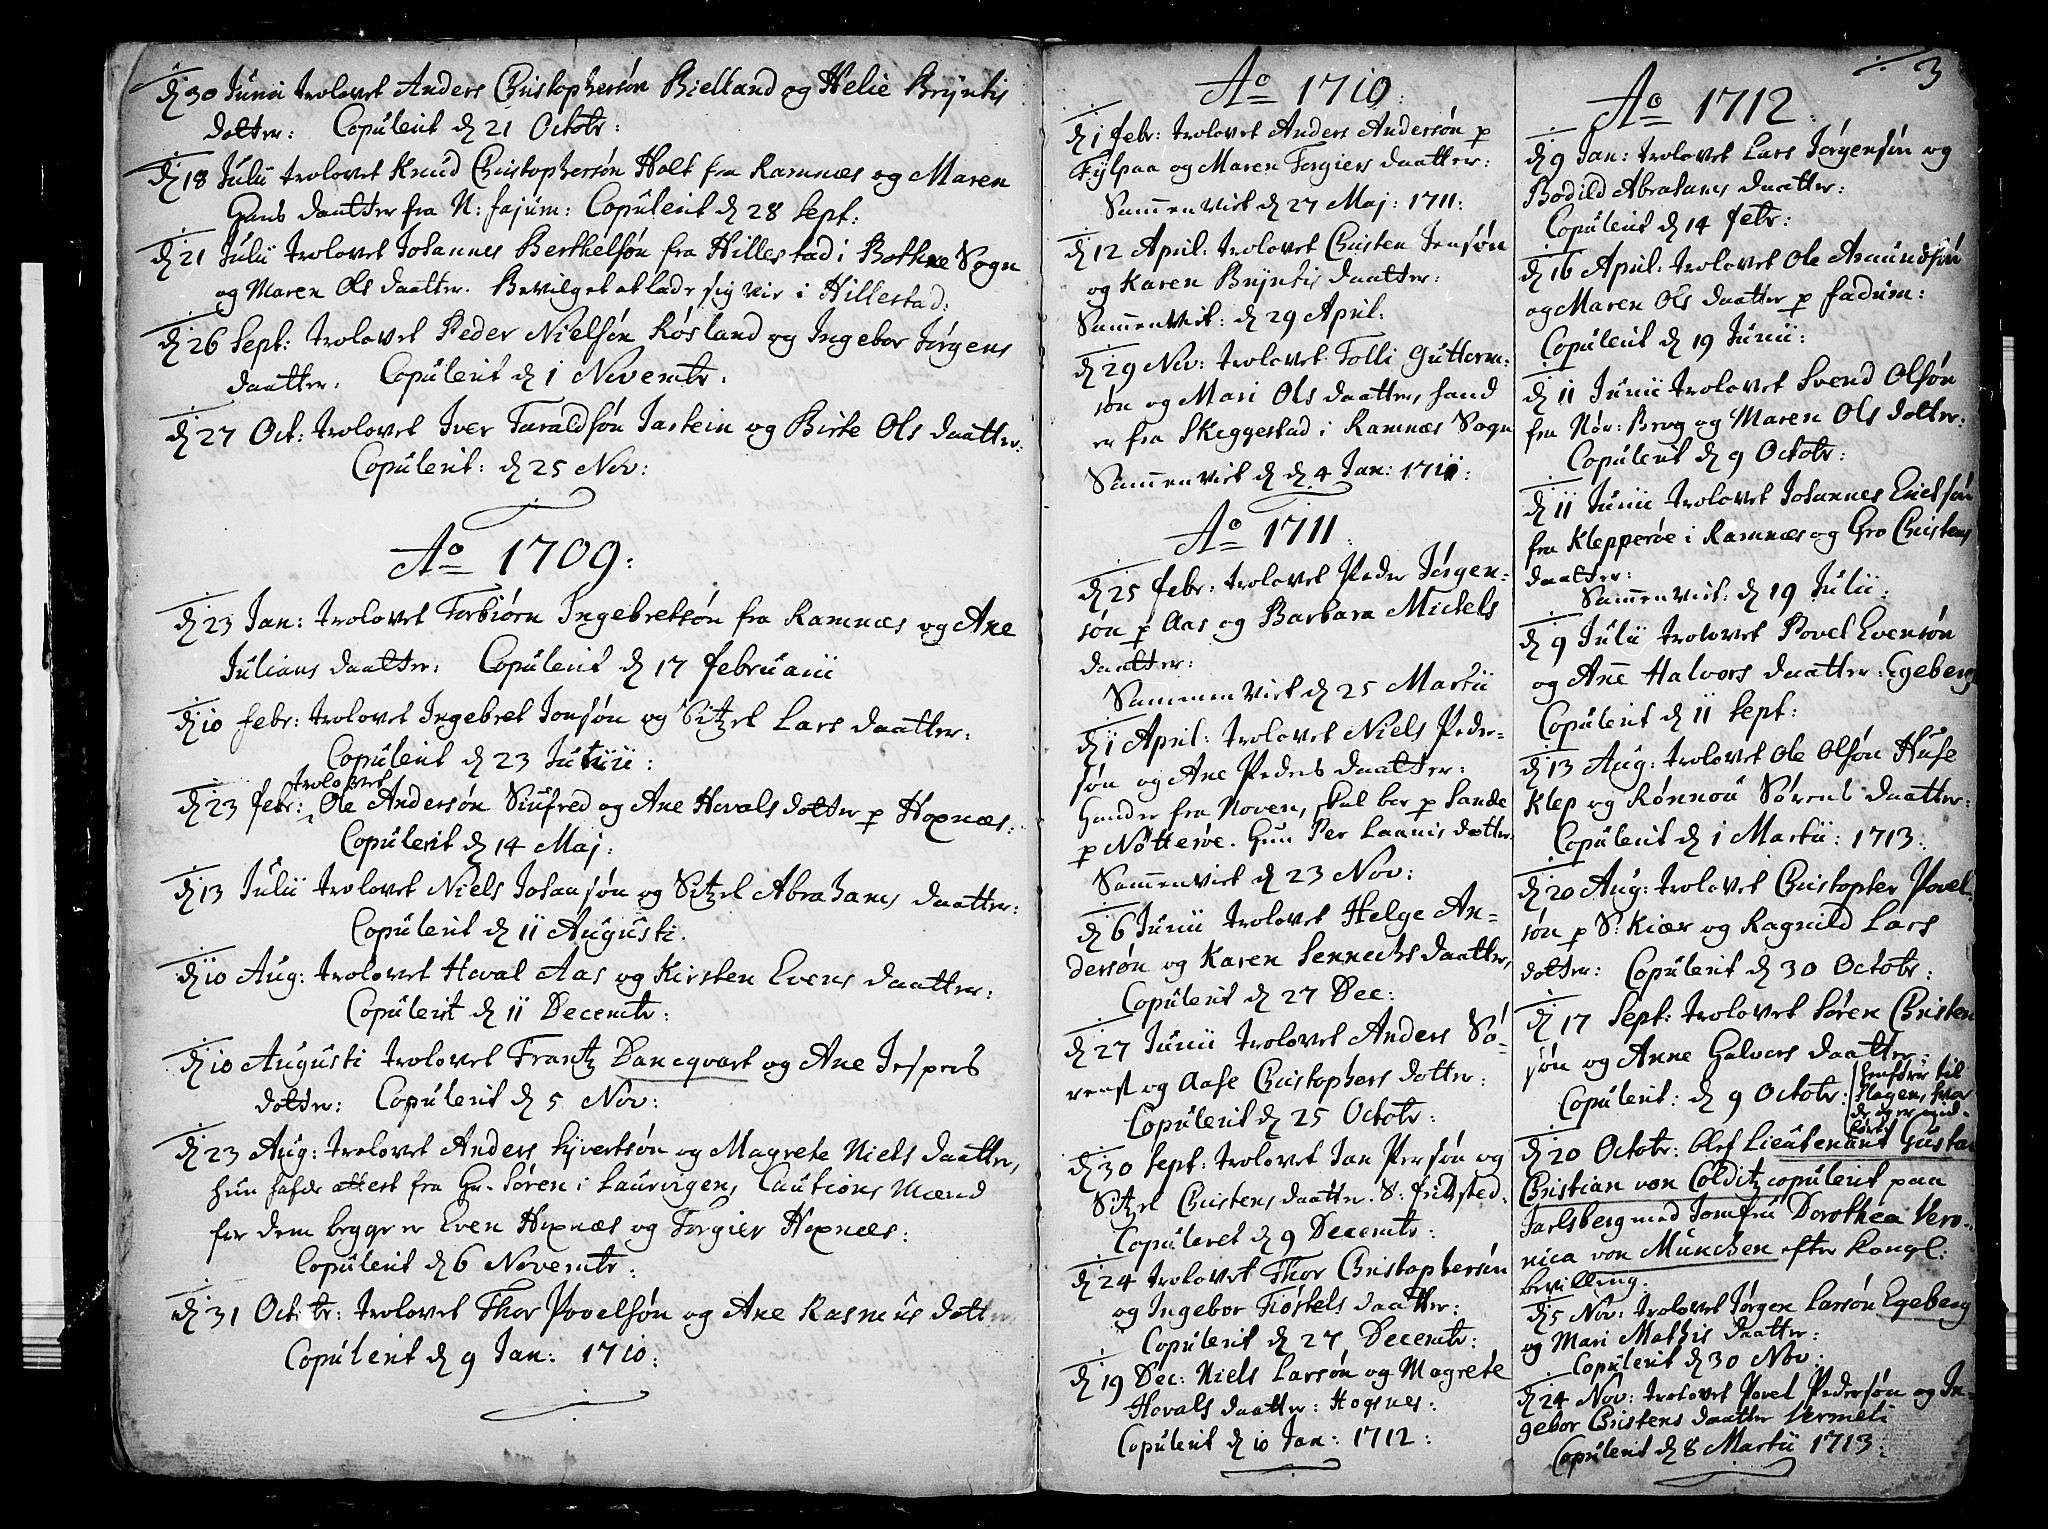 d 30 Junii trolovet Anders Christophersøn Bielland og Helie Bryntis
dotter: Copulerit d 21 Octobr:
d 18 Julii trolovet Knud Christophersøn Holt fra Ramnæs og Maren
Hans daatter fra N: fajum: Copulerit d 28 Sept:
d 21 Julii trolovet Johannes Berthelsøn fra Hillestad i Bothne Sogn
og Maren Ols daatter. Bevilget at lade sig vie i Hillestad:
d 26 Sept: trolovet Peder Nielsøn Røsland og Ingebor Jørgens
daatter: Copulerit d 1 Novembr:
d 27 Oct: trolovet Iver Taraldsøn Jastein og Birte Ols daatter:
Copulerit: d 25 Nov:
Ao 1709:
d 23 Jan: trolovet Torbiørn Ingebretsøn fra Ramnæs og Ane
Julians daatter: Copulerit d 17 februarii
d 10 febr: trolovet Ingebret Jonsøn og Sitzel Lars daatter:
Copulerit d 23 Julii:
trolovet
d 23 febr: Ole Andersøn Siufred og Ane Hovals dotter p Hoxnæs:
Copulerit d 14 Maj:
d 13 Julii trolovet Niels Johansøn og Sitzel Abrahams daatter:
Copulerit d 11 Augusti.
d 10 Aug: trolovet Hoval Aas og Kirsten Evens daatter:
Copulerit d 11 Decembr:
d 10 Augusti trolovet Frantz Dancqvart og Ane Jespers
dotter: Copulerit d 5 Nov:
d 23 Aug: trolovet Anders Syvertsøn og Magrete Niels daatter,
hun hafde attest fra Hr. Søren i Laurvigen, Cautions Mænd
for dem begge er Even Hoxnæs og Torgier Hoxnæs:
Copulerit d 6 Novembr:
d 31 Octobr: trolovet Thor Povelsøn og Ane Rasmus dotter
Copulerit d 9 Jan: 1710:
Ao 1710:
d 1 febr: trolovet Anders Andersøn p
Fylpaa og Maren Torgiers daatter:
Sammenviet d 27 Maj: 1711:
d 12 April: trolovet Christen Jensøn
og Karen Bryntis daatter:
Sammenviet: d 29 April:
d 29 Nov: trolovet Tolli Gutterm-
søn og Mari Ols daatter, hand
er fra Skeggestad i Ramnæs Sogn
Sammenviet d d 4 Jan: 1711:
Ao 1711
d 25 febr: trolovet Peder Jørgen-
søn p Aas og Barbara Mickels
daatter:
Sammenviet d 25 Martii
d 1 April: trolovet Niels Peder-
søn og Ane Peders daatter:
Hander fra Noven, skal boe p Sande
p Nøtterøe. Hun Per Laanis dotter.
Sammenviet d 23 Nov:
d 6 Junii trolovet Helge An-
dersøn og Karen Sennechs daatter,
Copulerit d 27 Dec:
d 27 Junii trolovet Anders Sø-
rens: og Aase Christophers dotter:
Copulerit d 25 Octobr:
d 30 Sept: trolovet Jan Persøn og
Sitzel Christens daatter. S: fritsted.
Copuleret d 9 Decembr:
d 24 trolovet Thor Christophersøn
og Ingebor Tiøstels daatter:
Copulerit d 27 Decembr:
d 19 Dec: Niels Larsøn og Magrete
Hovals daatter: Hogsnes:
Copulerit d 10 Jan: 1712:
3
Ao 1712:
d 9 Jan: trolovet Lars Jørgensøn og
Bodild Abrahams daatter:
Copulerit d 14 febr:
d 16 April: trolovet Ole Asmundsøn
og Maren Ols daatter p fadum:
Copulerit d 19 Junii:
d 11 Junii trolovet Svend Olsøn
fra Nør: Brog og Maren Ols dotter:
Copulerit d 9 Octobr:
d 11 Junii trolovet Johannes Erichsøn
fra Klepperøe i Ramnæs og Gro Christens
daatter:
Sammenviet: d 19 Julii:
d 9 Julii trolovet Povel Evensøn
og Ane Halvors daatter: Egeberg
Copulerit d 11 Sept:
d 13 Aug: trolovet Ole Olsøn Huse
Klep og Rønnou Sørens daatter:
Copulerit d 1 Martii: 1713:
d 20 Aug: trolovet Christopher Povel-
søn p S: Kiær og Ragnild Lars
dotter: Copulerit d 30 Octobr:
d 17 Sept: trolovet Søren Christen
søn og Anne Halvors daatter:
Copulerit: d 9 Octobr: henfører til
Slagen, hvor
de og er ind-
ført
d 20 Octobr: blef Lieutenant Gustav
Christian von Colditz copulerit paa
Jarlsberg med Jomfru Dorothea Vero-
nica von München efter Kongl:
bevilling.
d 5 Nov: trolovet Jørgen Larsøn Egeberg
og Mari Mathis daatter:
Copulerit d 30 Nov:
d 24 Nov: trolovet Povel Pedersøn og In-
gebor Christens daatter Vermeli
Copulerit d 8 Martii 1713: